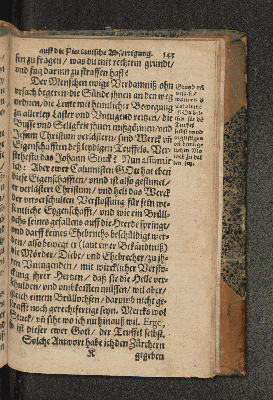 auff die Pistorianische Abfertigung. 143
sen zu fragen / was du mit rechtem grundt /
und fug daran zu straffen hast?
Der Menschen ewige Verdamniß ohn
ursach begeren: die Sünde ihnen an den weg
ordnen / die Leute mit heimlicher Bewegung
zu allerley Laster und Untugend reitzen / die
Busse und Seligkeit ihnen mißgönnen / und
Jesum Christum verlästern / sind Werck und
Eigenschafften deß leydigen Teuffels. Ver-
stehestu das Johann Stuck? Nun assumir
ich: Aber ewer Calvinisten Gott hat eben
diese Eigenschafften / unnd ist also gesinnet /
er verlästert Christum / und helt das Werck
der unverschulten Verstossung für sein we-
sentliche Eygenschafft / und wie ein Brüll-
ochs seines gefallens auff die Heerde springt /
und darff keines Ehebruchs beschuldigt wer-
den / also bewegt er (laut ewer Bekändtniß)
die Mörder / Diebe / und Ehebrecher / zu ih-
ren Untugenden / mit würcklicher Versto-
ckung ihrer Hertzen / daß sie die Helle ver-
schulden / und umbkommen müssen / wil aber /
gleich einem Brüllochsen / darumb nicht ge-
strafft noch gerechtfertigt seyn. Mercks wol
Stuck / und sihe wo ich nu hinauß wil. Ergo,
so ist dieser ewer Gott / der Teuffel selbst.
Solche Antwort habe ich den Zürchern
K gegeben